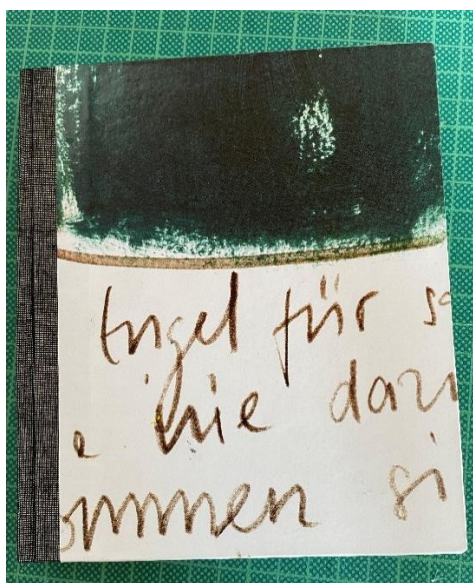 Engel für s
e nie dazu
ommen si